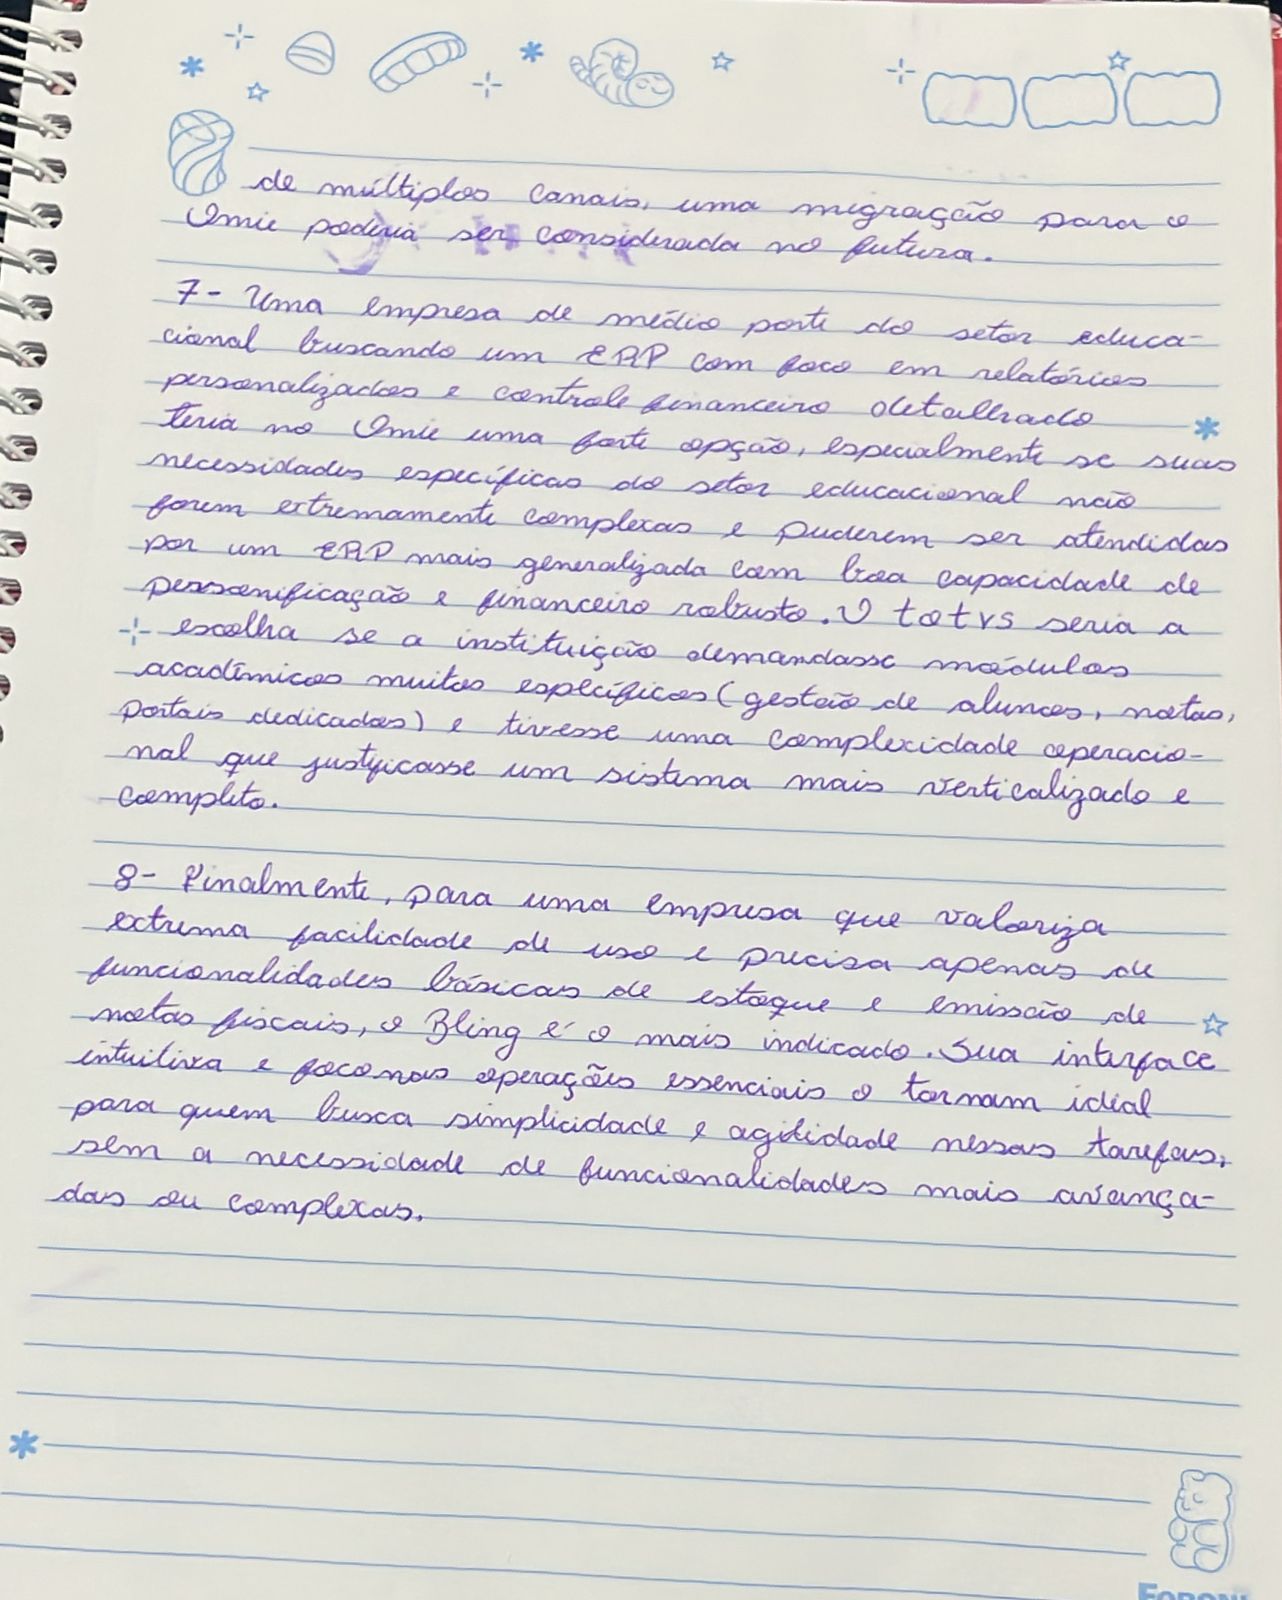 de múltiplos canais, uma migração para o
Omie poderia ser considerada no futuro.
7- Uma empresa de médio porte do setor educa-
cional buscando um ERP com foco em relatórios
personalizados e controle financeiro detalhado
teria no Omie uma forte opção, especialmente se suas
necessidades específicas do setor educacional não
forem extremamente complexas e puderem ser atendidas
por um ERP mais generalizada com boa capacidade de
personificação e financeiro robusto. O totvs seria a
escolha se a instituição demandasse módulos
acadêmicos muitos específicos (gestão de alunos, notas,
portais dedicados) e tivesse uma complexidade operacio-
nal que justificasse um sistema mais verticalizado e
completo.
8- Finalmente, para uma empresa que valoriza
extrema facilidade de uso e precisa apenas de
funcionalidades básicas de estoque e emissão de
notas fiscais, o Bling é o mais indicado. Sua interface
intuitiva e foco nas operações essenciais o tornam ideal
para quem busca simplicidade e agilidade nessas tarefas,
sem a necessidade de funcionalidades mais avança-
das ou complexas.
FORONI